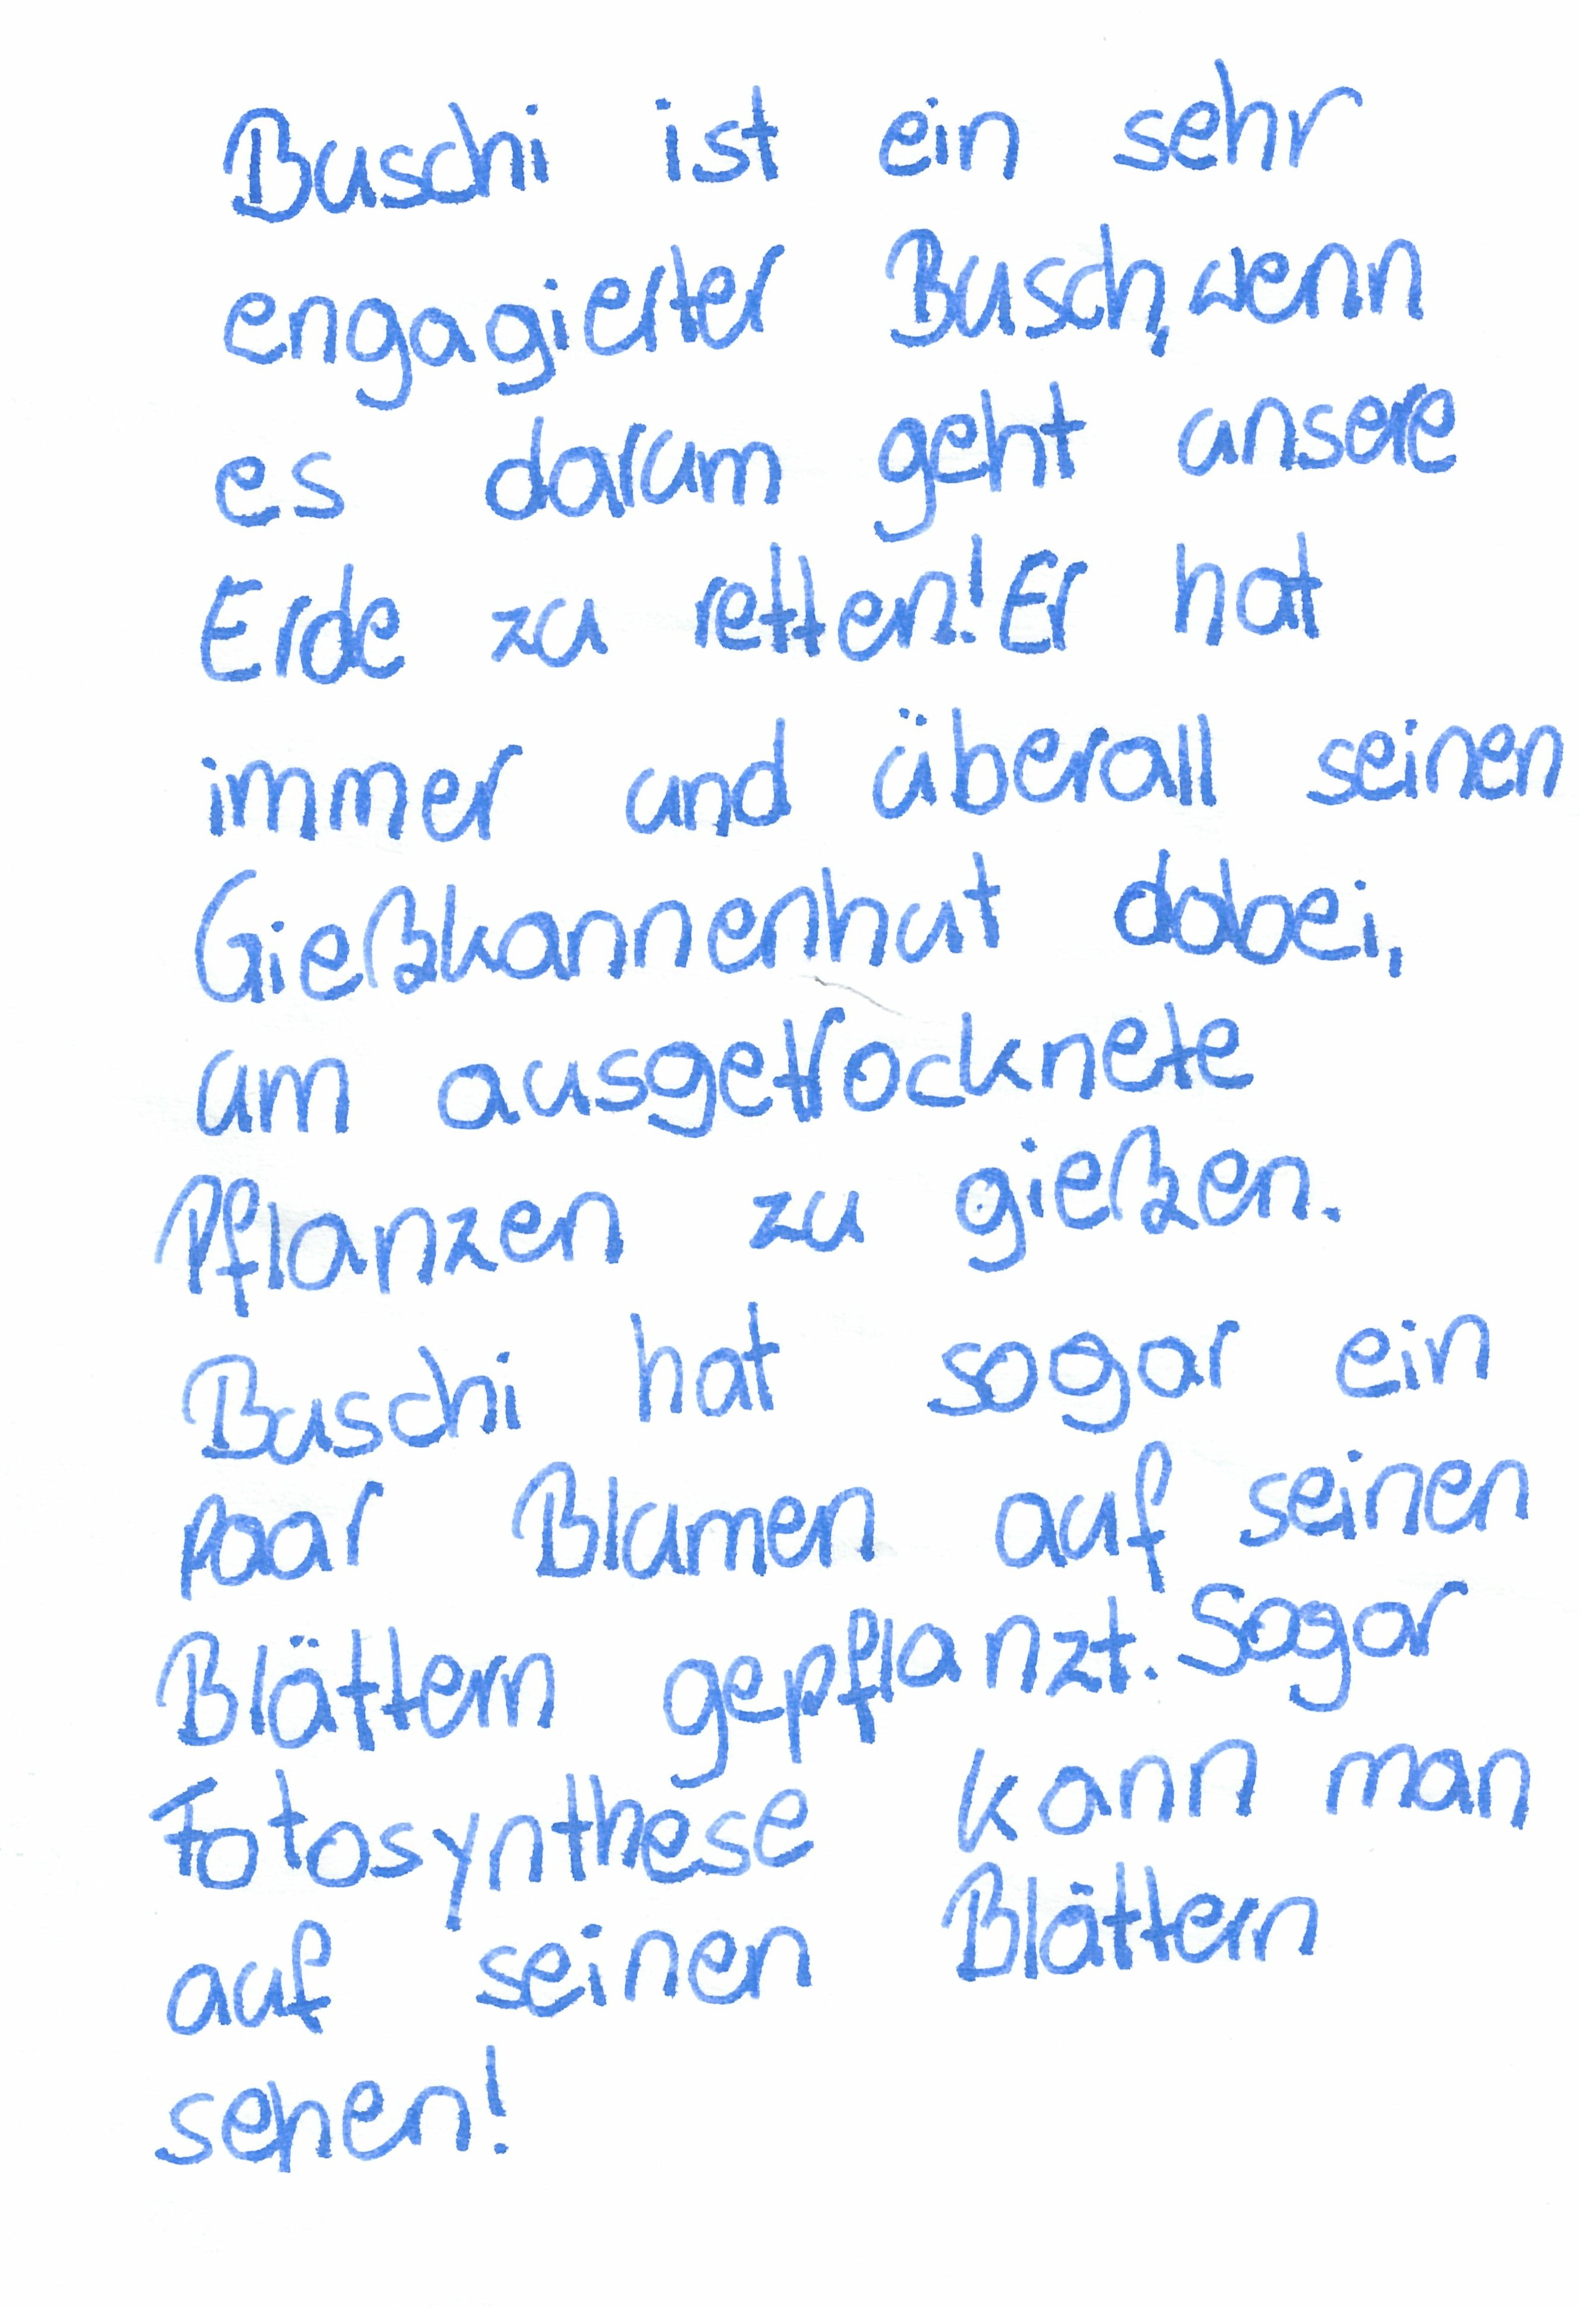 Buschi ist ein sehr
engagierter Busch, wenn
es darum geht unsere
Erde zu retten! Er hat
immer und überall seinen
Gießkannenhut dabei,
um ausgetrocknete
Pflanzen zu gießen.
Buschi hat sogar ein
paar Blumen auf seinen
Blättern gepflanzt. Sogar
Fotosynthese kann man
auf seinen Blättern
sehen!